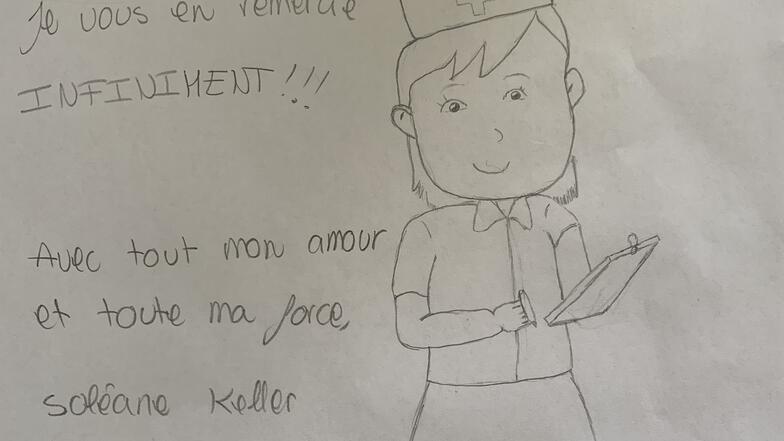 Je vous en remercie
INFINIMENT!!!
Avec tout mon amour
et toute ma force,
Soléane Keller